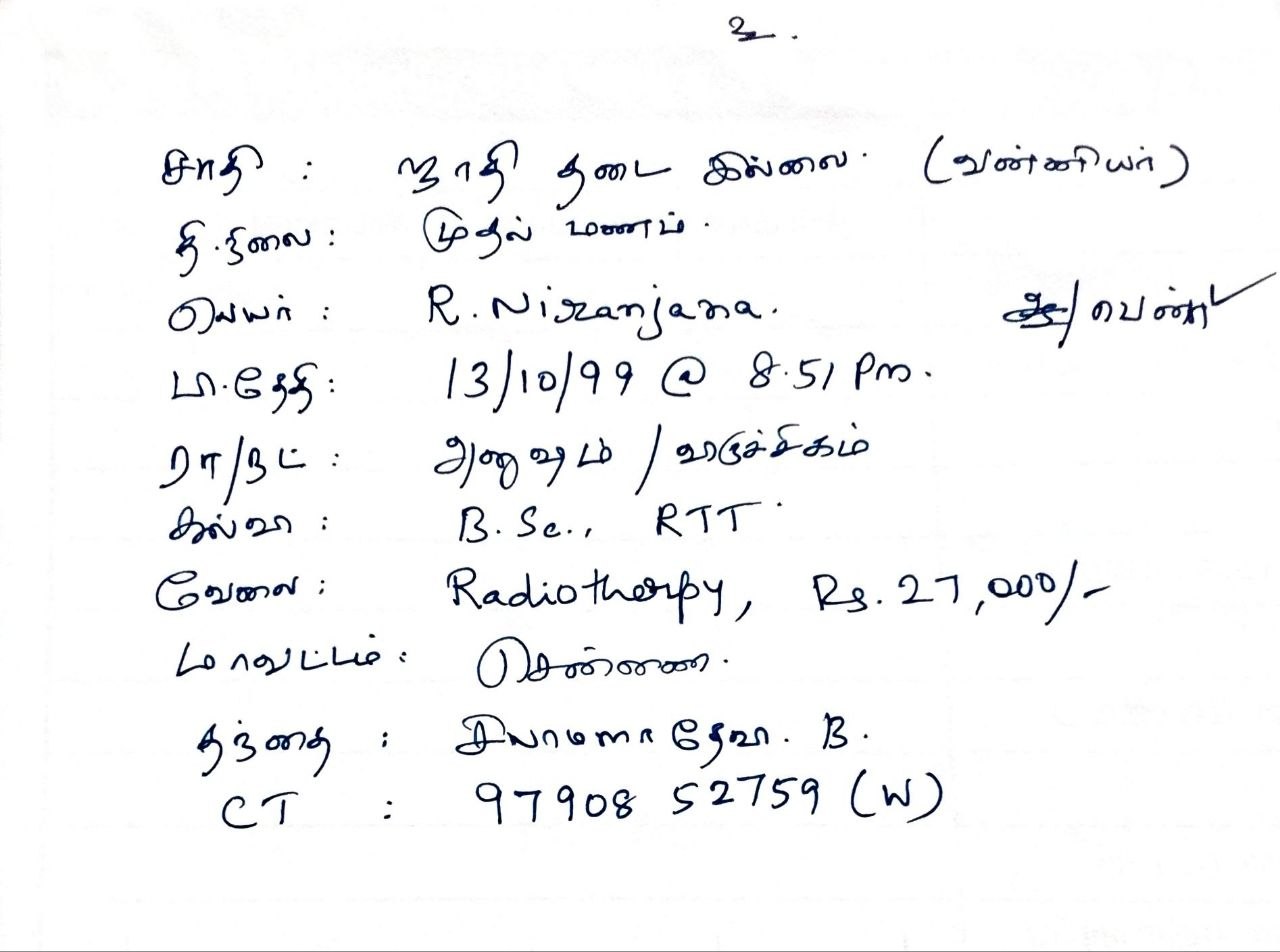 உ.
சாதி : ஜாதி தடை இல்லை. (வன்னியர்)
தி.நிலை : முதல் மணம்.
பெயர் : R. Niranjana. ஆ/பெண் ✓
பி.தேதி : 13/10/99 @ 8.51 Pm.
ரா/நட் : அனுஷம் / விருச்சிகம்
கல்வி : B.Sc., RTT.
வேலை : Radiotherpy, Rs. 27,000/-
மாவட்டம் : சென்னை.
தந்தை : B.
CT : 97908 52759 (W)